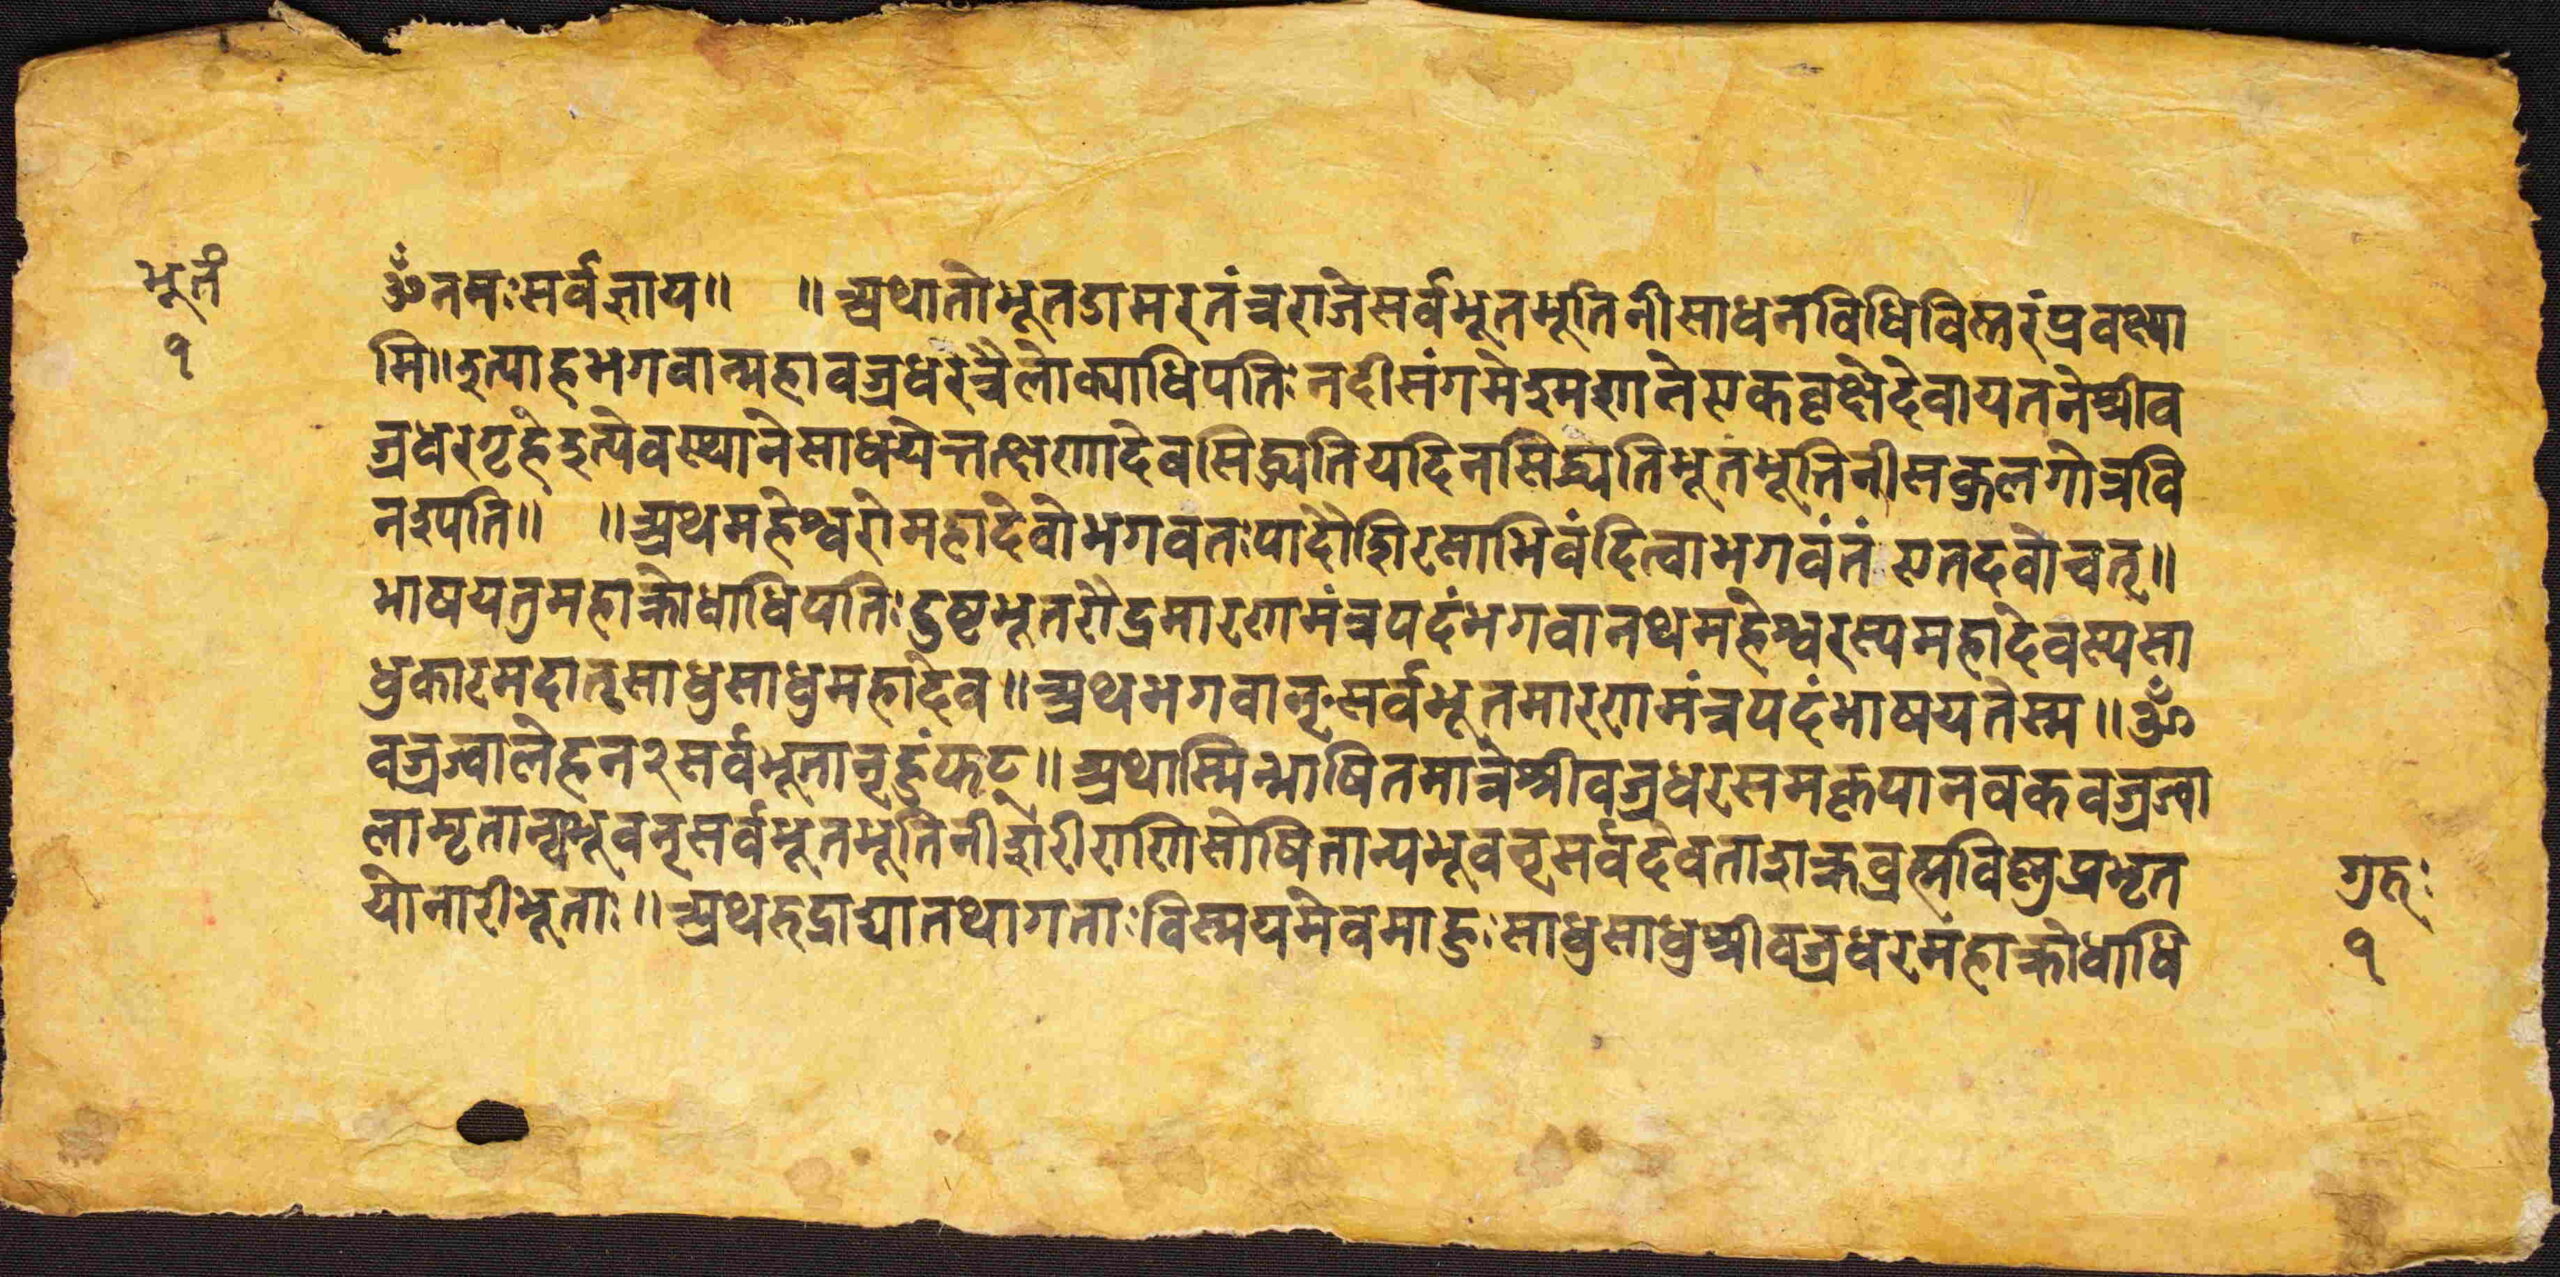 भूतं
१
ॐनमःसर्वज्ञाय॥ ॥अथातोभूतडामरतंत्रराजेसर्वभूतभूतिनीसाधनविधिविस्तरंप्रवक्ष्या
मि॥इत्याहभगवान्महावज्रधरेत्रैलोक्याधिपतिःनदीसंगमेश्मशानेएकवृक्षेदेवायतनेश्रीव
ज्रधरगृहेइत्येवस्थानेसाधयेत्तत्क्षणादेवसिद्ध्यतियदिनसिद्ध्यतिभूतभूतिनीसकुलगोत्रवि
नश्पति॥ ॥अथमहेश्वरोमहादेवोभगवतःपादौशिरसाभिवंदित्वाभगवंतंएतदवोचत्॥
भाषयतुमहाक्रोधाधिपतिःदुष्टभूतरौद्रमारणमंत्रपदंभगवानथमहेश्वरस्यमहादेवस्यसा
धुकारमदात्साधुसाधुमहादेव॥अथभगवान्सर्वभूतमारणमंत्रपदंभाषयतेस्म॥ॐ
वज्रज्वालेहन२सर्वभूतान्हुंफट्॥अथास्मिन्भाषितमात्रेश्रीवज्रधरसमकृपानवकवज्रज्वा
लामृतान्यभूवन्सर्वभूतभूतिनीशरीराणिसोषितान्यभूवन्सर्वदेवताशक्रब्रह्मविष्णुप्रभृत
योनारीभूताः॥अथरुद्राद्यातथागताःविस्मयमेवमाहुःसाधुसाधुश्रीवज्रधरमहाक्रोधाधि
गुरुः
१